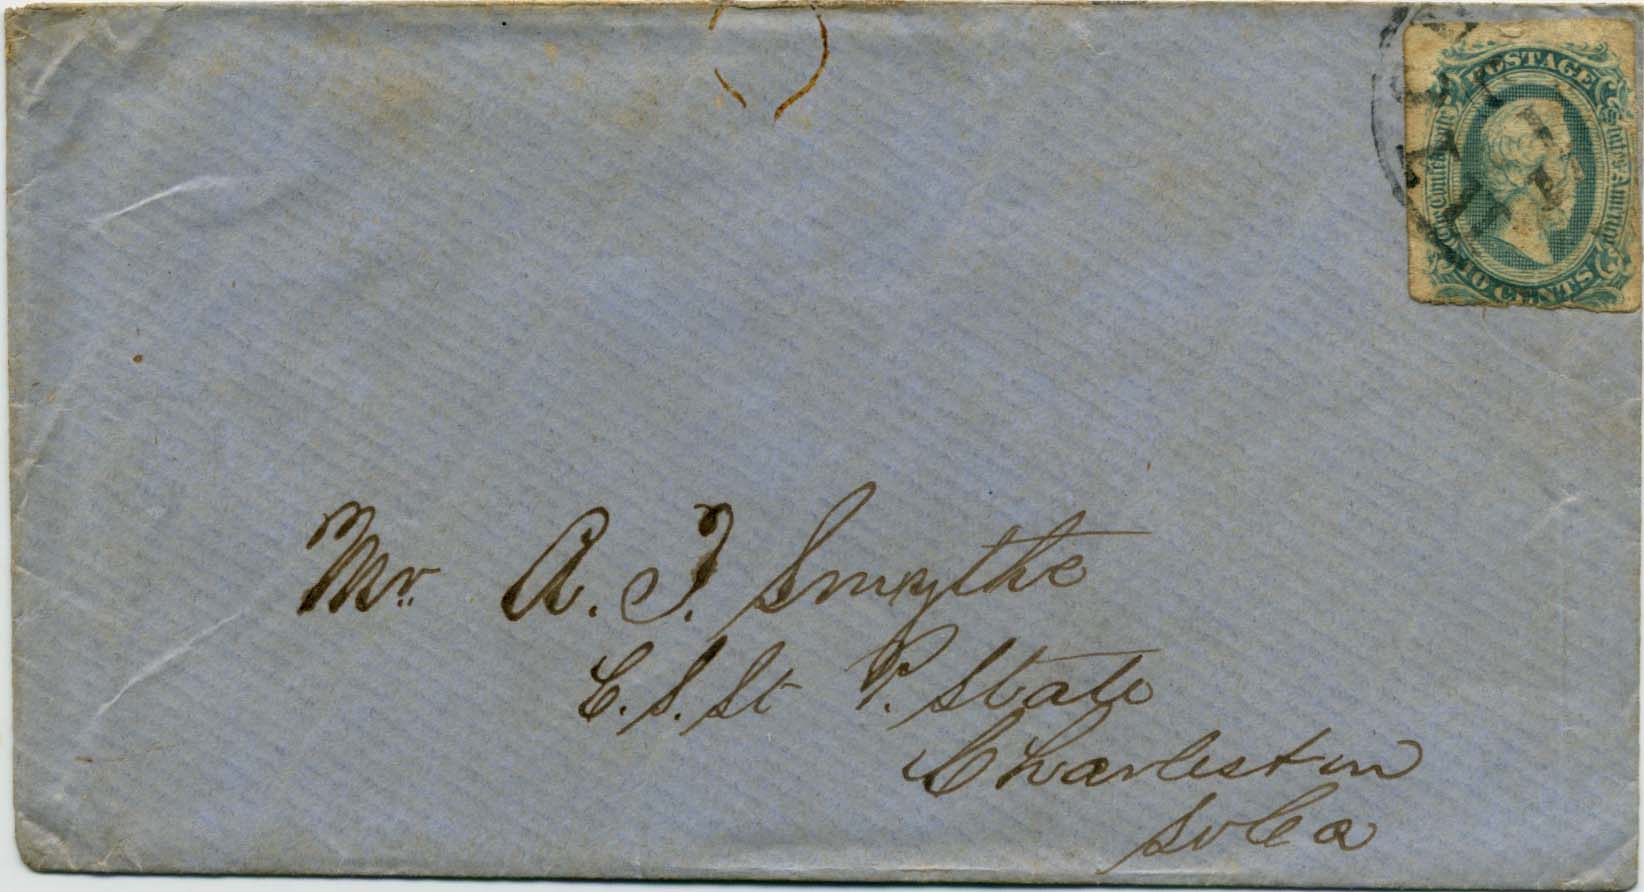 POSTAGE
The Confederate States of America
10 CENTS
Mr. A. T. Smythe
C. S. St P. State
Charleston
So Ca